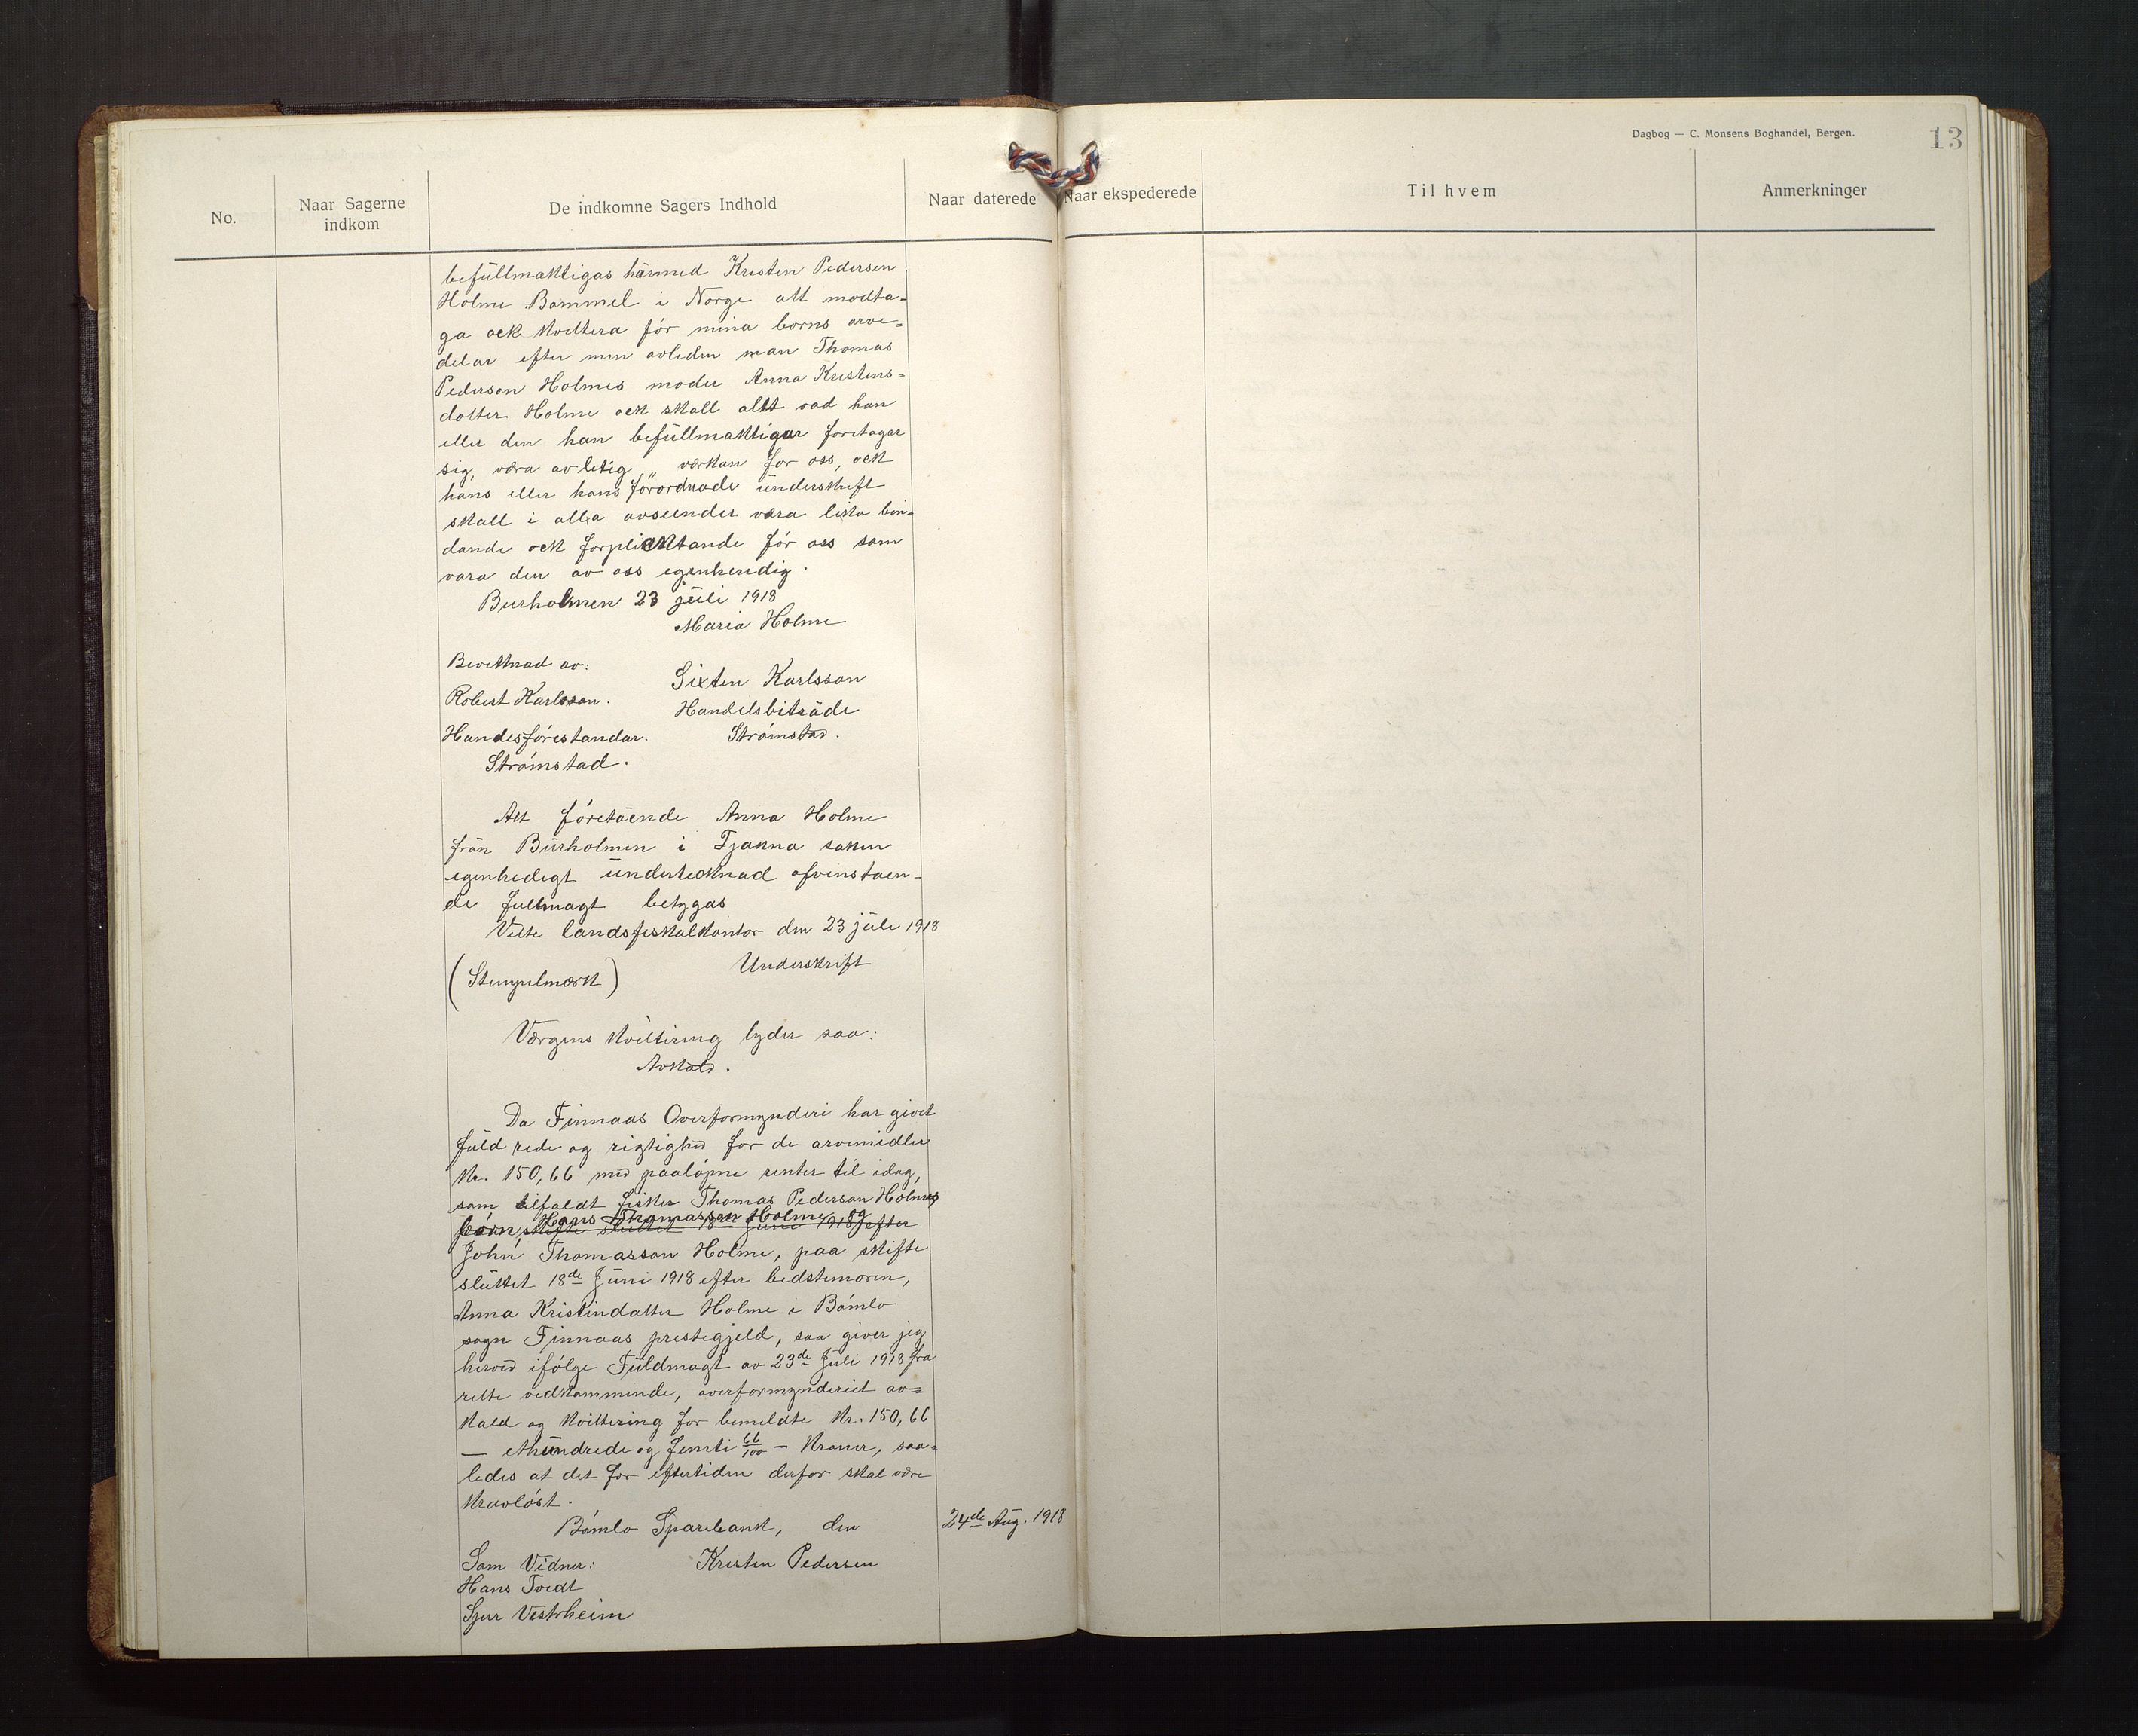 Dagbog — C. Monsens Boghandel, Bergen.
13
No.
Naar Sagerne
indkom
De indkomne Sagers Indhold
Naar daterede
Naar ekspederede
Til hvem
Anmerkninger
befullmaktigas härmed Kristen Pedersen
Holme Bømmel i Norge att modta-
ga ock kvittera för mina borns arve-
delar efter min avleden man Thomas
Pederson Holmes moder Anna Kristens-
dotter Holme ock skall allt vad han
eller den han befullmaktigar foretagar
sig, vara av letig „ verkan for oss, ock
hans eller hans förordnade underskrift
skall i alla avseender vara lika bin-
dande ock forplicktande för oss som
vara den av oss egenhendig.
Burholmen 23 juli 1918
Maria Holme
Bevittnad av:
Robert Karlsson.
Handesförestandar.
Strömstad.
Sixten Karlsson
Handelsbiträde
Strömstad.
Att företaende Anna Holme
från Burholmen i Tjärna saken
egenhedigt undertecknad ofvenstaen-
de fullmagt betygas
Vette landsfiskalkontor den 23 juli 1918
(Stempelmerk)
Underskrift
Værgens kvittering lyder saa:
Avkald.
Da Finnaas Overformynderi har givet
fuld rede og rigtighed for de arvemidler
kr. 150,66 med paaløpne renter til idag,
som tilfaldt fisker Thomas Pederson Holmes
Hans Thomasson Holme og
børn, skifte sluttet 18de Juni 1918 efter
John Thomasson Holme, paa skifte
sluttet 18de Juni 1918 efter bedstemoren,
Anna Kristindatter Holme i Bømlo
sogn Finnaas prestegjeld, saa giver jeg
herved ifølge Fuldmagt av 23de Juli 1918 fra
rette vedkommende, overformynderiet av-
kald og kvittering for bemeldte kr. 150,66
— ethundrede og femti 66/100 — Kroner, saa-
ledes at det for eftertiden derfor skal være
kravløst.
Bømlo Sparebank, den
24de Aug. 1918
Som Vidner:
Kristen Pedersen
Hans Tvedt
Sjur Vestrheim